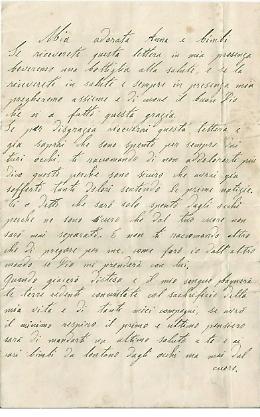 Mia adorata Anna e bimbi
Se riceverete questa lettera in mia presenza
beveremo una bottiglia alla salute, e se la
riceverete in salute e sempre in presenza mia
pregheremo assieme e di cuore il buon Dio
che ci a fatto questa grazia.
Se per disgrazia riceverai questa lettera e
già saprai che sono spento per sempre dai
tuoi occhi, ti raccomando di non adolorarti più
di questo perchè sono sicuro che avrai già
sofferto tanti dolori sentendo le prime notizie.
Ti o detto che sarò solo spento dagli occhi
perchè ne sono sicuro che dal tuo cuore non
sarò mai separato. E non ti raccomando altro
che di pregare per me, come farò io dall'altro
mondo se Dio mi prenderà con lui.
Quando giacerò disteso e il mio sangue bagnerà
le terre redenti conquistate col sachrificio della
mia vita e di tanti miei compagni, se avrò
il minimo respiro il primo e ultimo pensiero
sarà di mandarti un ultimo saluto a te e ai
cari bimbi da lontano dagli occhi ma mai dal
cuore.